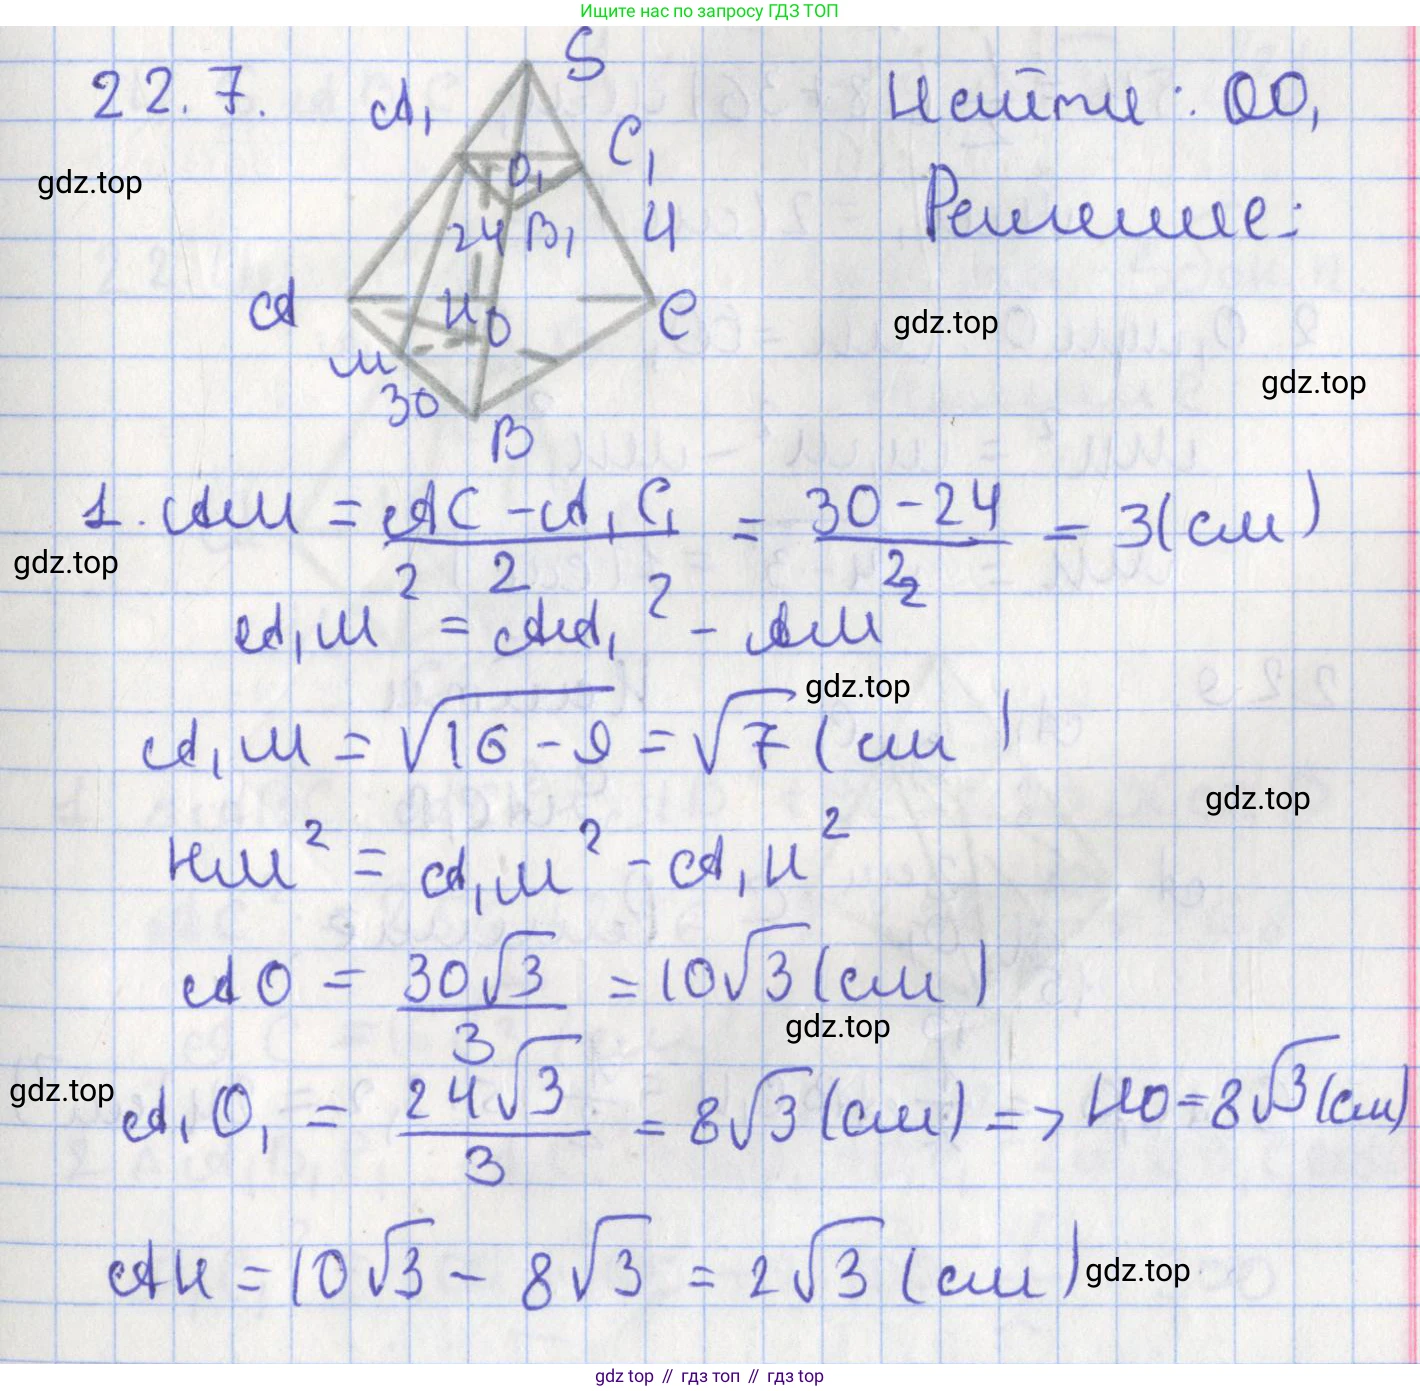 Ищите нас по запросу ГДЗ ТОП
22.7.
S
A₁
C₁
O₁
24
B₁
4
A
H
O
C
M
30
B
Найти: OO₁
Решение:
gdz.top
gdz.top
gdz.top
1. AM = (AC - A₁C₁)/2 = (30 - 24)/2 = 3(см)
gdz.top
A₁M² = AA₁² - AM²
gdz.top
A₁M = √16 - 9 = √7 (см)
gdz.top
HM² = A₁M² - A₁H²
AO = 30√3/3 = 10√3 (см)
gdz.top
gdz.top
A₁O₁ = 24√3/3 = 8√3 (см) => HO = 8√3 (см)
AH = 10√3 - 8√3 = 2√3 (см)
gdz.top
gdz.top // гдз топ // гдз top